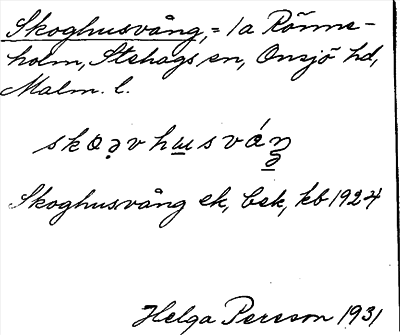 Skoghusvång, = /a Rönne-
holm, Stehags sn, Onsjö hd,
Malm. l.
skoəvhusváŋ
Skoghusvång ek, bek, kb 1924
Helga Persson 1931